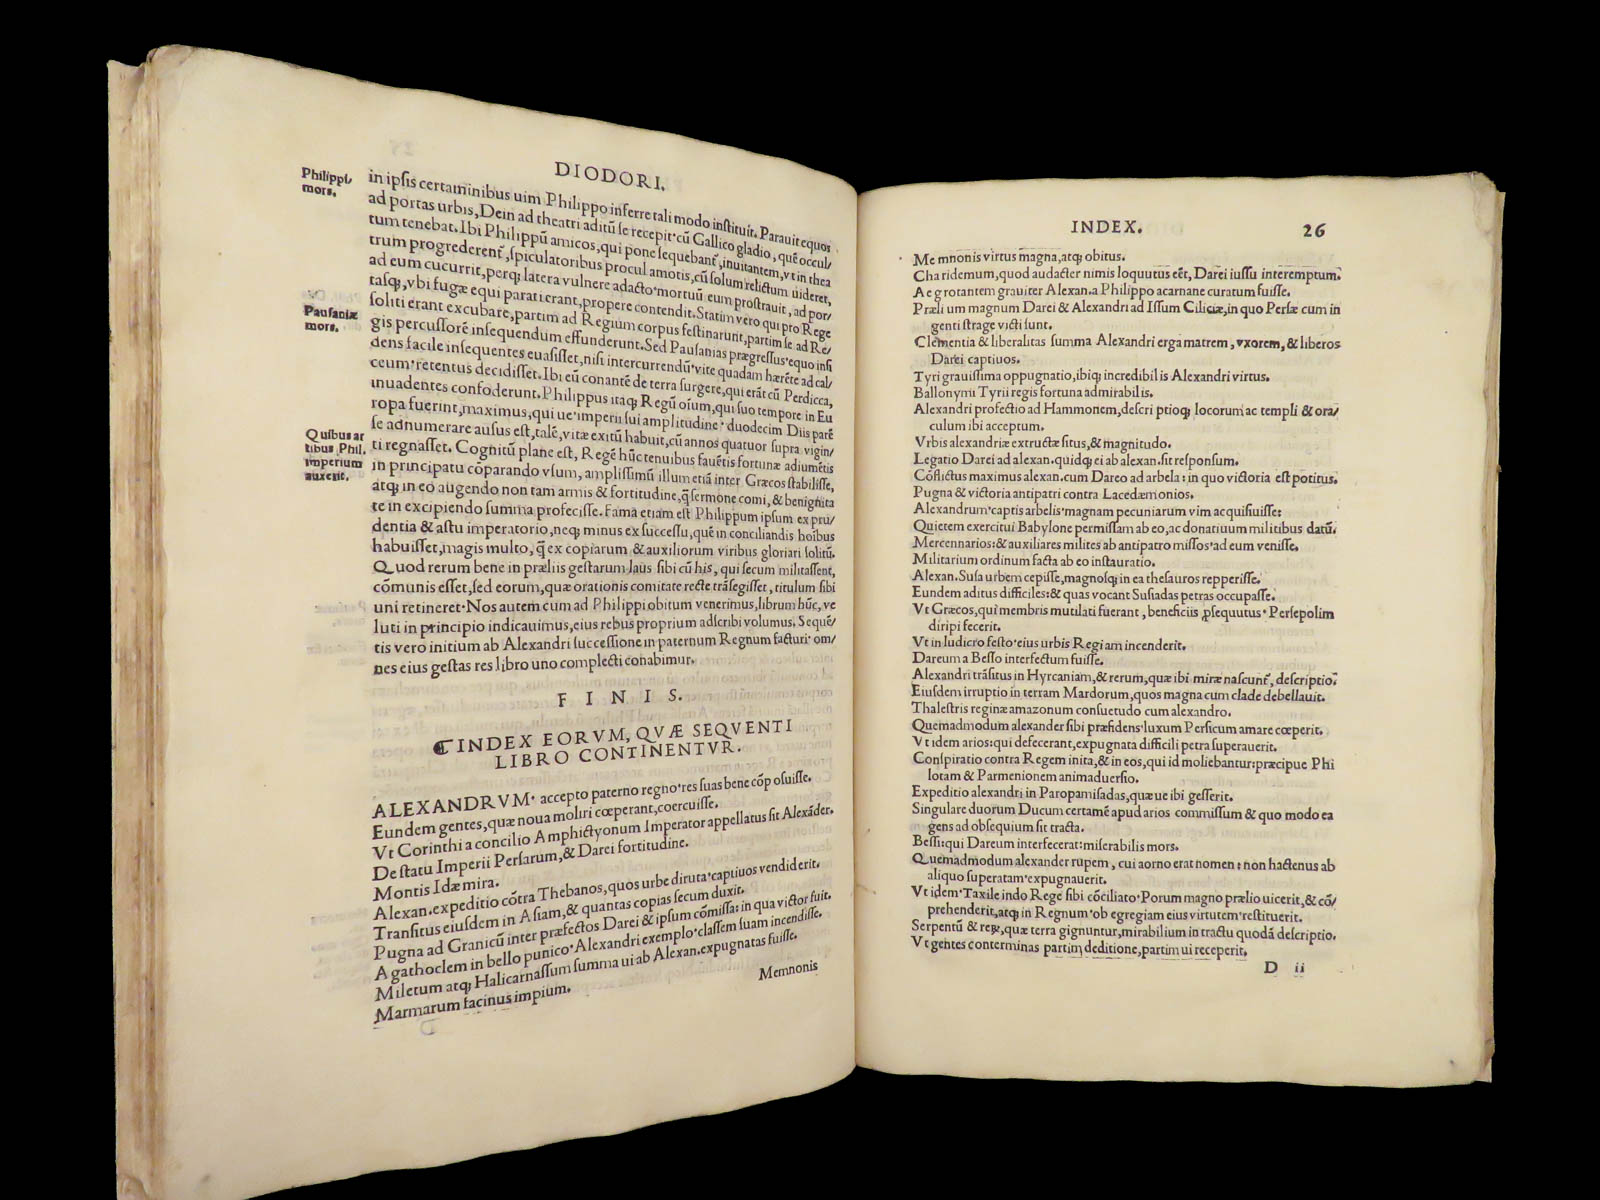 DIODORI.
Philippi/
mors.
in ipsis certaminibus uim Philippo inferre tali modo instituit. Parauit equos
ad portas urbis, Dein ad theatri aditũ se recepit·cũ Gallico gladio, quẽ occul/
tum tenebat. Ibi Philippũ amicos, qui pone sequebanť, inuitantem, vt in thea
trum progrederenť, spiculatoribus procul amotis, cũ solum relictum uideret,
ad eum cucurrit, perq; latera vulnere adacto·mortuũ eum prostrauit, ad por/
tasq;, vbi fugæ equi parati erant, propere contendit. Statim vero qui pro Rege
soliti erant excubare, partim ad Regium corpus festinarunt, partim se ad Re/
Pausaniæ
mors.
gis percussorẽ insequendum effunderunt. Sed Pausanias prægressus·equo insi
dens facile insequentes euasisset, nisi intercurrendũ·vite quadam hærẽte ad cal/
ceum·retentus decidisset. Ibi eũ conantẽ de terra surgere, qui erãt cũ Perdicca,
inuadentes confoderunt. Philippus itaq; Regũ oĩum, qui suo tempore in Eu
ropa fuerint, maximus, qui ue·imperii sui amplitudine·duodecim Diis parẽ
se adnumerare ausus est, talẽ, vitæ exitũ habuit, cũ annos quatuor supra vigin/
Quibus ar
tibus Phil.
imperium
auxerit.
ti regnasset. Cognitũ plane est, Regẽ hũc tenuibus fauẽtis fortunæ adiumẽtis
in principatu cõparando vsum, amplissimũ illum etiã inter Græcos stabilisse,
atq; in eo augendo non tam armis & fortitudine, q̃ sermone comi, & benignita
te in excipiendo summa profecisse. Fama etiam est Philippum ipsum ex pru/
dentia & astu imperatorio, neq; minus ex successu, quẽ in conciliandis hoĩbus
habuisset, magis multo, q̃ ex copiarum & auxiliorum viribus gloriari solitũ.
Quod rerum bene in præliis gestarum laus sibi cũ his, qui secum militassent,
cõmunis esset, sed eorum, quæ orationis comitate recte trãsegisset, titulum sibi
uni retineret· Nos autem cum ad Philippi obitum venerimus, librum hũc, ve
luti in principio indicauimus, eius rebus proprium adscribi volumus. Sequẽ/
tis vero initium ab Alexandri successione in paternum Regnum facturi·om/
nes eius gestas res libro uno complecti conabimur.
FINIS.
INDEX EORVM, QVÆ SEQVENTI
LIBRO CONTINENTVR.
ALEXANDRVM· accepto paterno regno·res suas bene cõposuisse.
Eundem gentes, quæ noua moliri cœperant, coercuisse.
Vt Corinthi a concilio Amphictyonum Imperator appellatus sit Alexãder.
De statu Imperii Persarum, & Darei fortitudine.
Montis Idæ mira.
Alexan. expeditio cõtra Thebanos, quos urbe diruta·captiuos vendiderit.
Transitus eiusdem in Asiam, & quantas copias secum duxit.
Pugna ad Granicũ inter præfectos Darei & ipsum cõmissa: in qua victor fuit.
Agathoclem in bello punico·Alexandri exemplo·classem suam incendisse.
Miletum atq; Halicarnassum summa ui ab Alexan. expugnatas fuisse.
Marmarum facinus impium.
Memnonis
INDEX. 26
Memnonis virtus magna, atq; obitus.
Charidemum, quod audacter nimis loquutus eẽt, Darei iussu interemptum.
Aegrotantem grauiter Alexan. a Philippo acarnane curatum fuisse.
Prælium magnum Darei & Alexandri ad Issum Ciliciæ, in quo Persæ cum in
genti strage victi sunt.
Clementia & liberalitas summa Alexandri erga matrem, vxorem, & liberos
Darei captiuos.
Tyri grauissima oppugnatio, ibiq; incredibilis Alexandri virtus.
Ballonymi Tyrii regis fortuna admirabilis.
Alexandri profectio ad Hammonem, descriptioq; locorum ac templi & ora/
culum ibi acceptum.
Vrbis alexandriæ extructæ situs, & magnitudo.
Legatio Darei ad alexan. quidq; ei ab alexan. sit responsum.
Cõflictus maximus alexan. cum Dareo ad arbela: in quo victoria est potitus.
Pugna & victoria antipatri contra Lacedæmonios.
Alexandrum·captis arbelis·magnam pecuniarum vim acquisiuisse:
Quietem exercitui Babylone permissam ab eo, ac donatiuum militibus datũ.
Mercennarios: & auxiliares milites ab antipatro missos·ad eum venisse.
Militarium ordinum facta ab eo instauratio.
Alexan. Susa urbem cepisse, magnosq; in ea thesauros repperisse.
Eundem aditus difficiles: & quas vocant Susiadas petras occupasse.
Vt Græcos, qui membris mutilati fuerant, beneficiis p̱sequutus· Persepolim
diripi fecerit.
Vt in ludicro festo·eius urbis Regiam incenderit.
Dareum a Besso interfectum fuisse.
Alexandri trãsitus in Hyrcaniam, & rerum, quæ ibi miræ nascunť, descriptio.
Eiusdem irruptio in terram Mardorum, quos magna cum clade debellauit.
Thalestris reginæ amazonum consuetudo cum alexandro.
Quemadmodum alexander sibi præfidens·luxum Persicum amare cœperit.
Vt idem arios: qui defecerant, expugnata difficili petra superauerit.
Conspiratio contra Regem inita, & in eos, qui id moliebantur: præcipue Phi
lotam & Parmenionem animaduersio.
Expeditio alexandri in Paropamisadas, quæ ue ibi gesserit.
Singulare duorum Ducum certamẽ apud arios commissum & quo modo ea
gens ad obsequium sit tracta.
Bessi: qui Dareum interfecerat: miserabilis mors.
Quemadmodum alexander rupem, cui aorno erat nomen: non hactenus ab
aliquo superatam·expugnauerit.
Vt idem·Taxile indo Rege sibi cõciliato·Porum magno prælio uicerit, & cõ/
prehenderit, atq; in Regnum·ob egregiam eius virtutem·restituerit.
Serpentũ & reṟ, quæ terra gignuntur, mirabilium in tractu quodã descriptio.
Vt gentes conterminas partim deditione, partim ui receperit.
D ii